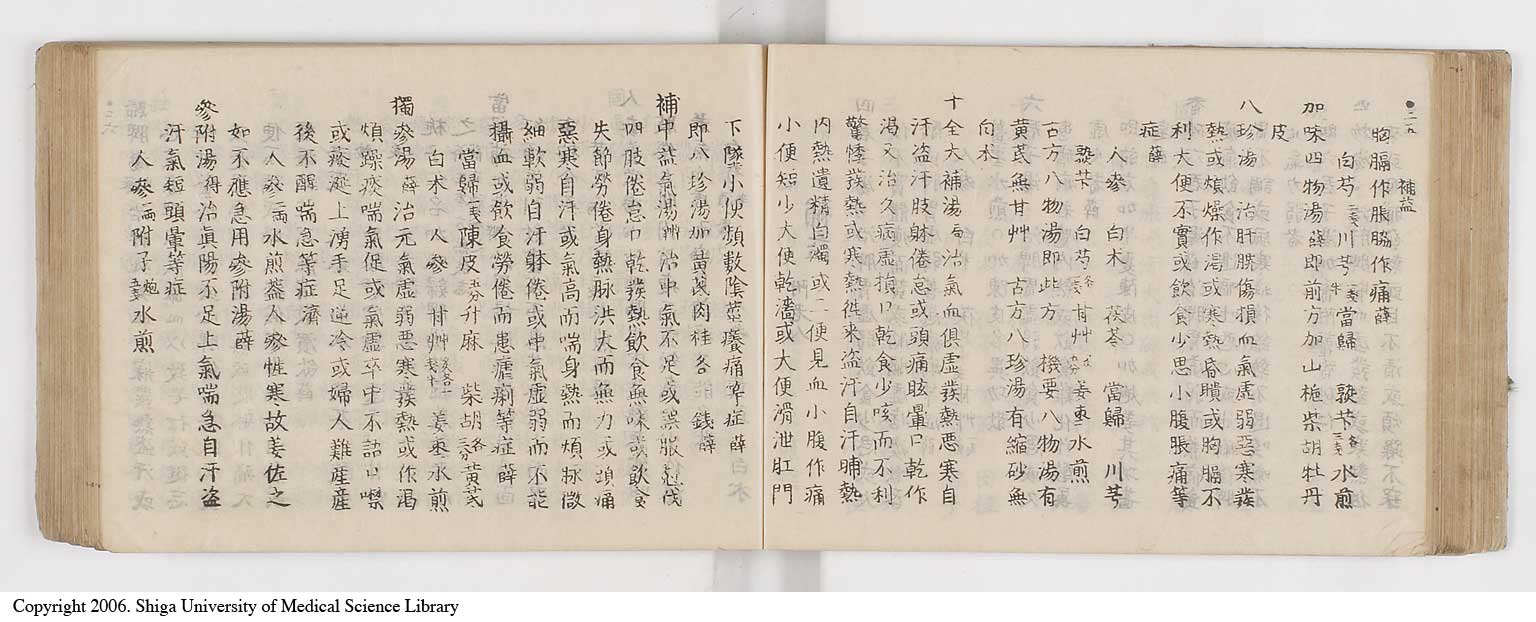 補益
胸膈作脹脇作痛薛
白芍 川芎 當歸 熟芐 水煎
加味四物湯薛即前方加山梔柴胡牡丹
皮
八珍湯 治肝脾傷損血氣虛弱惡寒發
熱或煩燥作渴或寒熱昏瞶或胸膈不
利大便不實或飲食少思小腹脹痛等
症薛
人參 白朮 茯苓 當歸 川芎
熟芐 白芍 甘艸 姜棗水煎
古方八物湯即此方 機要八物湯有
黃芪無甘艸 古方八珍湯有縮砂無
白朮
十全大補湯局 治氣血俱虛發熱惡寒自
汗盜汗肢躰倦怠或頭痛眩暈口乾作
渴又治久病虛損口乾食少咳而不利
驚悸發熱或寒熱徃來盜汗自汗晡熱
內熱遺精白濁或二便見血小腹作痛
小便短少大便乾濇或大便滑泄肛門
下墜小便頻數陰莖癢痛等症薛
即八珍湯加黃芪肉桂各 錢薛
補中益氣湯 治中氣不足或誤服尅伐
四肢倦怠口乾發熱飲食無味或飲食
失節勞倦身熱脉洪大而無力或頭痛
惡寒自汗或氣高而喘身熱而煩脉微
細軟弱自汗躰倦或中氣虛弱而不能
攝血或飲食勞倦而患瘧痢等症薛
當歸 陳皮 升麻 柴胡 黃芪
白朮 人參 甘艸 姜棗水煎
獨參湯薛 治元氣虛弱惡寒發熱或作渴
煩躁痰喘氣促或氣虛卒中不語口噤
或痰涎上湧手足逆冷或婦人難產產
後不醒喘急等症濟
人參二兩水煎蓋人參性寒故姜佐之
如不應急用參附湯薛
參附湯得 治眞陽不足上氣喘急自汗盜
汗氣短頭暈等症
人參一兩附子炮 水煎
Copyright 2006. Shiga University of Medical Science Library